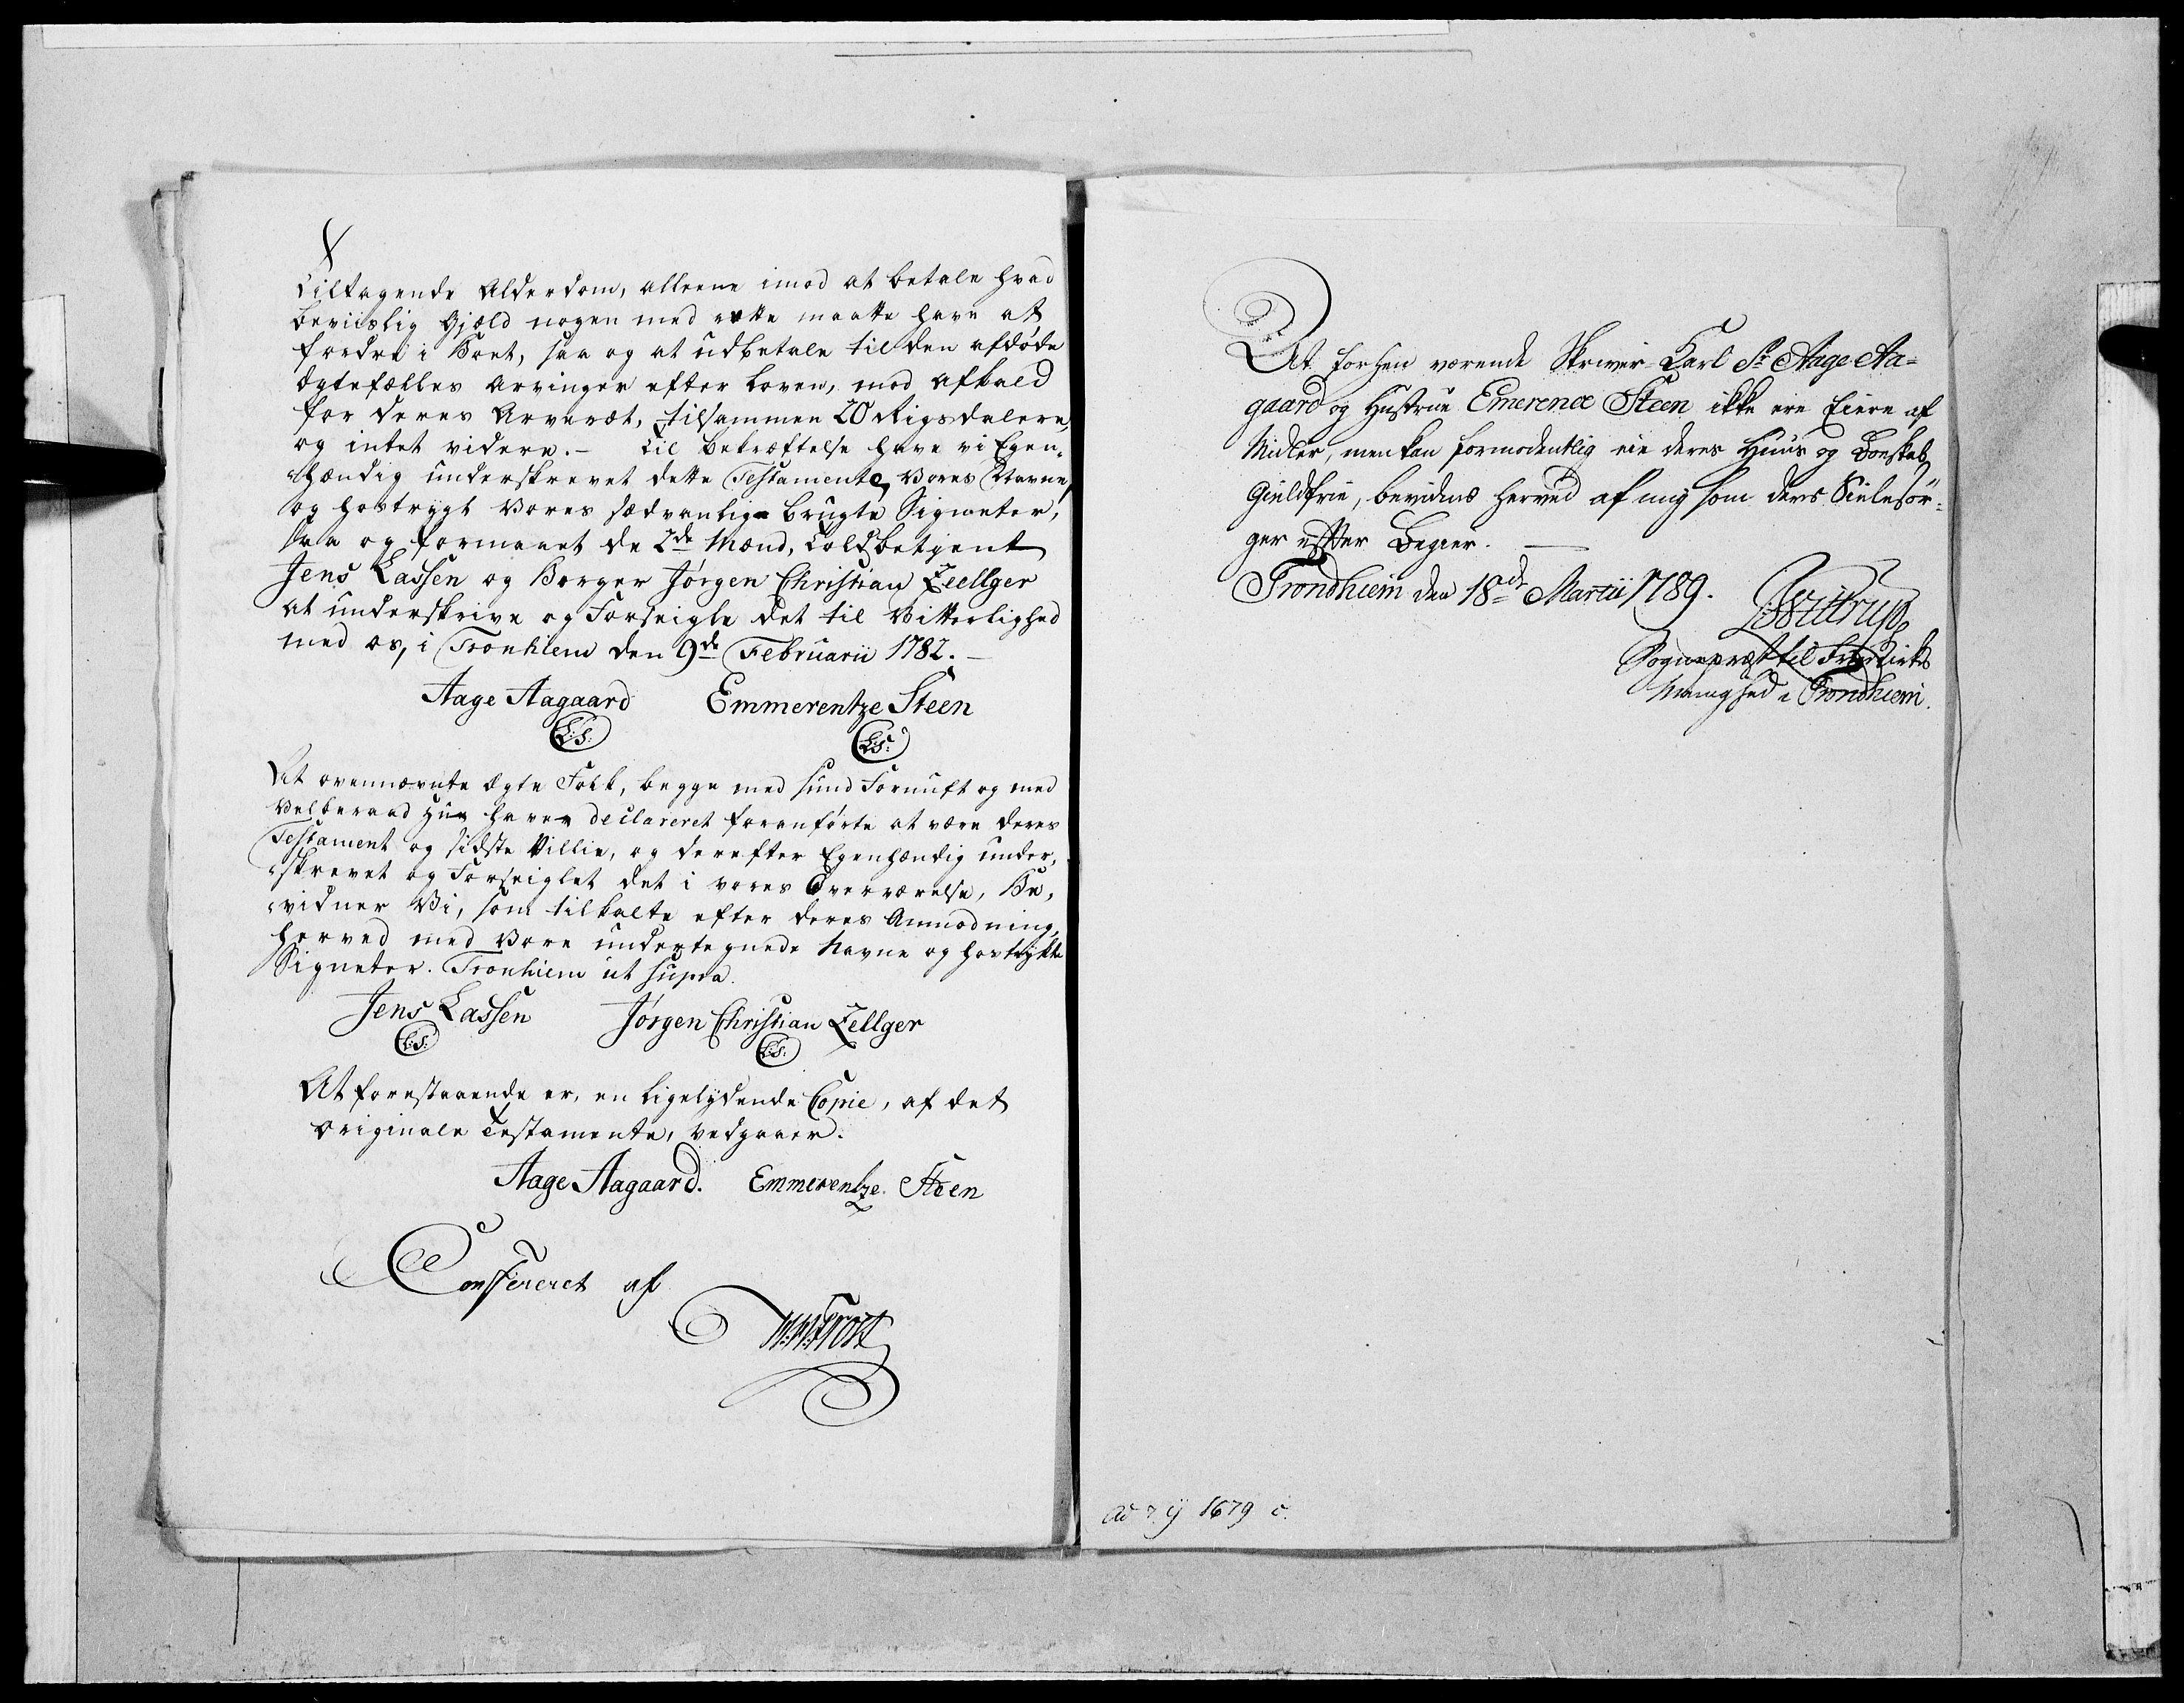 tiltagende Alderdom, alleene imod at betale hvad
beviislig Gjæld nogen med rette maatte have at
fordre i Boet, saa og at udbetale til den afdøde
Ægtefælles Arvinger efter Loven, mod Afkald
for deres Arveræt, tilsammen 20 Rigsdalere,
og intet videre. – Til Bekræftelse have vi Egen-
hændig underskrevet dette Testamente, Vores Navne,
og hostrygt Vores sædvanlige brugte Signeter,
saa og formaaet de 2de Mænd, Toldbetjent
Jens Lassen og Borger Jørgen Christian Zeellger
at underskrive og Forseigle det til Vitterlighed
med os, i Tronhiem den 9de Februarii 1782. –
Aage Aagaard Emmerentze Steen
L:S: L:S:
At ovennævnte Ægte Folk, begge med sund Fornuft og med
Velberaad Hu have declareret foranførte at være deres
Testament og sidste Villie, og derefter Egenhændig under-
skrevet og Forseiglet det i vores Overværelse, Be-
vidner Vi, som tilkalte efter deres Anmodning,
herved med Vore undertegnede Navne og hostrykte
Signeter. Tronhiem ut supra.
Jens Lassen Jørgen Christian Zellger
L:S: L:S:
At forestaaende er, en ligelydende Copie, af det
Originale Testamente, vedgaaer.
Aage Aagaard. Emmerentze Steen
Confereret af
At forhen værende Skriver-Karl Sr Aage Aa=
gaard og Hustrue Emerence Steen ikke ere Eiere af
Midler, men kan formodentlig eie deres Huus og Boeskab
Gieldfrie, bevidnes herved af mig som deres Sielesør-
ger efter Begier.
Trondhiem den 18de Martii 1789.
Wittrup
Sognepræst til Frue Kirkes
Menighed i Trondhiem.
1679